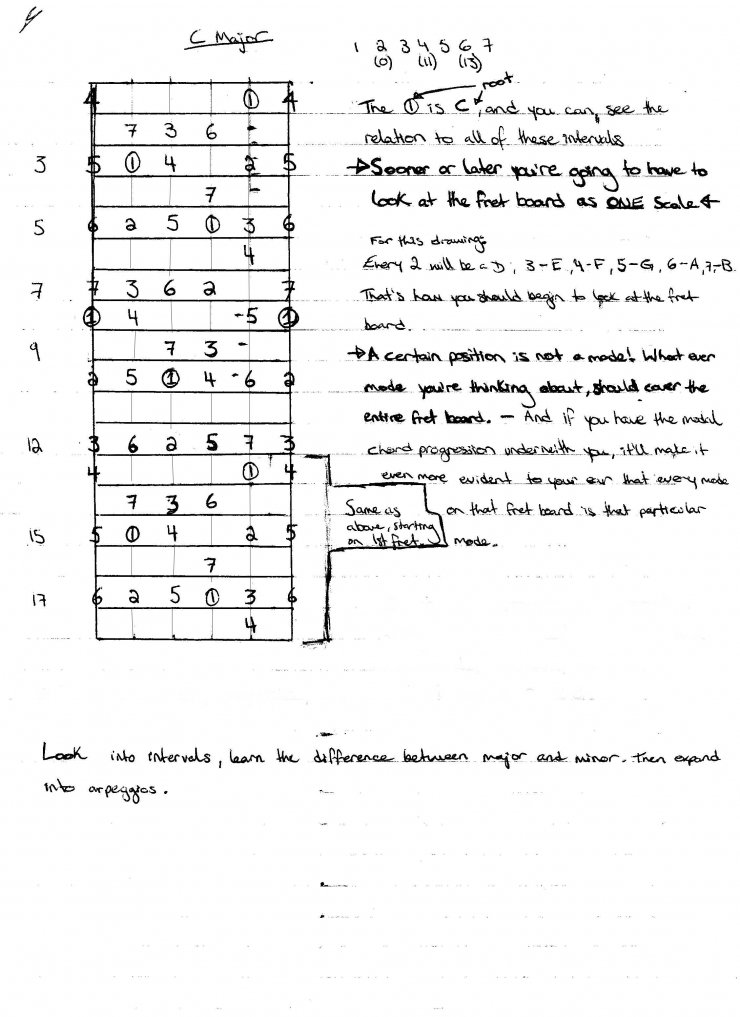 4
C Major
1 2 3 4 5 6 7
(0) (11) (13)
root
The ① is C, and you can see the
relation to all of these intervals
→Sooner or later you're going to have to
look at the fret board as ONE scale
For this drawing:
Every 2 will be a D, 3-E, 4-F, 5-G, 6-A, 7-B.
That's how you should begin to look at the fret
board.
→A certain position is not a mode! What ever
mode you're thinking about, should cover the
entire fret board. — And if you have the modal
chord progression underneith you, it'll make it
even more evident to your ear that every mode
on that fret board is that particular
mode.
4 ① 4
7 3 6 -
3 5 ① 4 2 5
7 -
5 6 2 5 ① 3 6
4
7 7 3 6 2 7
① 4 -5 ①
9 7 3 -
2 5 ① 4 -6 2
12 3 6 2 5 7 3
4 ① 4
7 3 6
15 5 ① 4 2 5
7
17 6 2 5 ① 3 6
4
Same as
above, starting
on 1st fret.
Look into intervals, learn the difference between major and minor. Then expand
into arpeggios.